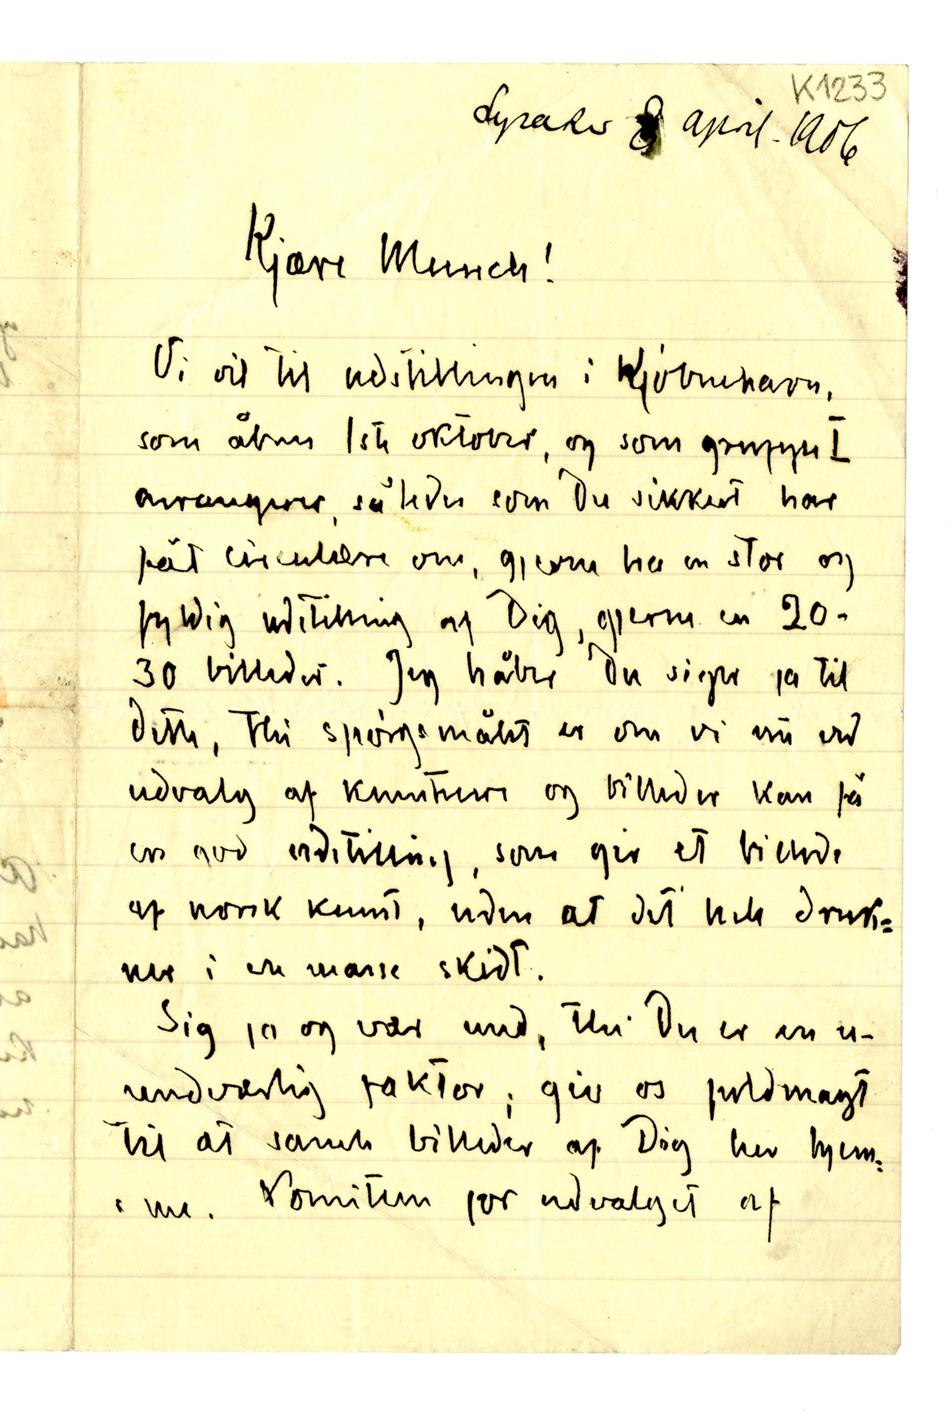 K1233
Lysaker 8 april. 1906
Kjære Munch!
Vi vil til udstillingen i Kjöbenhavn,
som åbnes 1ste oktober, og som gruppe I
arrangerer, således som Du sikkert har
fåt circulære om, gjerne ha en stor og
fyldig udstilling af Dig, gjerne en 20-
30 billeder. Jeg håber Du siger ja til
dette, thi spörgsmålet er om vi nu ved
udvalg af kunstnere og billeder kan få
en god udstilling, som gir et billede
af norsk kunst, uden at det hele druk=
ner i en masse skidt.
Sig ja og vær med, thi Du er en u-
undværlig faktor; giv os fuldmagt
til at samle billeder af Dig her hjem=
me. Komiteen for udvalget af